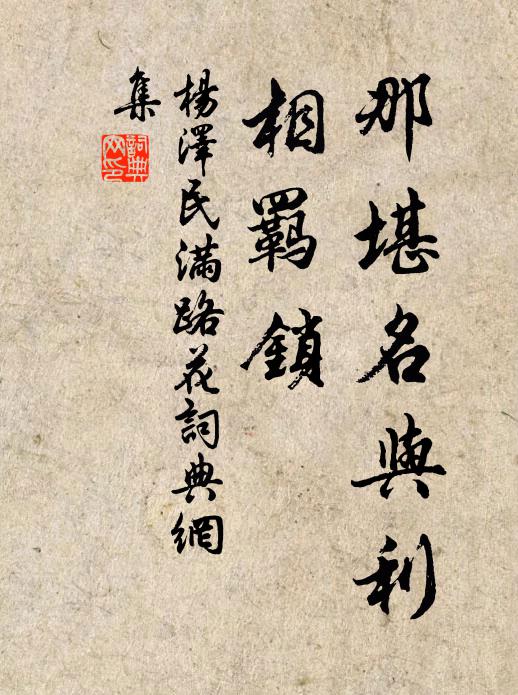 那堪名與利
相羈鎖
楊澤民滿路花詞典網
集
詞典網印